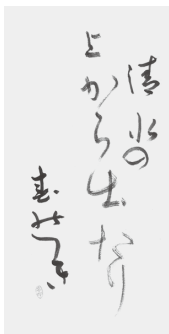 清水の
上から出たり
春の月